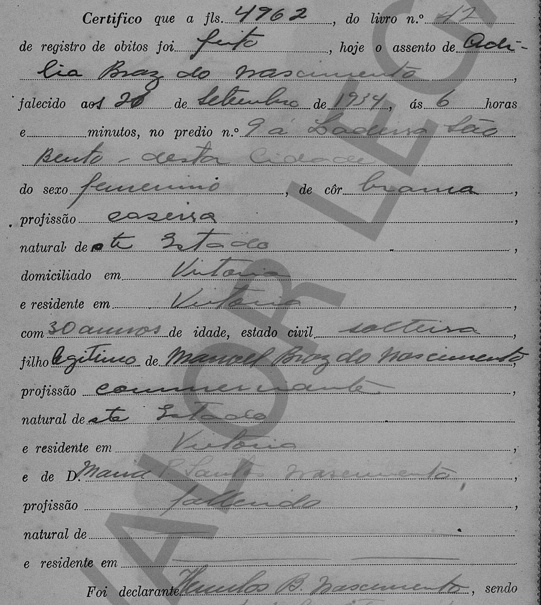 Certifico que a fls. 4962, do livro n.º 42
de registro de obitos foi feito, hoje o assento de Adi-
lia Braz do Nascimento,
falecido aos 20 de Setembro de 1934, ás 6 horas
e minutos, no predio n.º 9 á Ladeira São
Bento - desta Cidade,
do sexo femenino, de côr branca,
profissão caseira,
natural de ste Estado,
domiciliado em Victoria,
e residente em Victoria,
com 30 annos de idade, estado civil solteira,
filho legitimo de Manoel Braz do Nascimento,
profissão commerciante,
natural de ste Estado,
e residente em Victoria,
e de D. Maria P. Santos Nascimento,
profissão fallecida,
natural de,
e residente em
Foi declarante B. Nascimento, sendo
VALOR LEGA